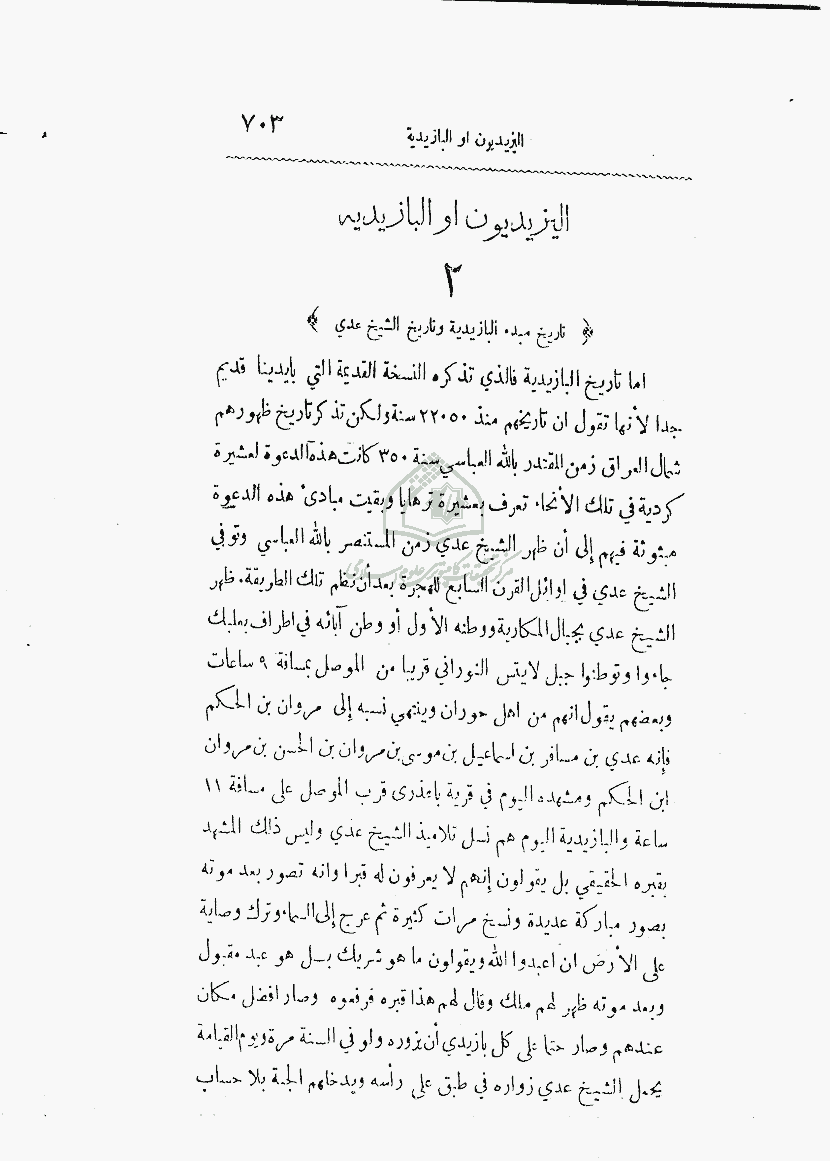 ٧٠٣
اليزيديون او البازيدية
اليزيديون او البازيديه
٢
﴿ تاريخ مبدء البازيدية وتاريخ الشيخ عدي ﴾
اما تاريخ البازيدية فالذي تذكره النسخة القديمة التي بايدينا قديم
جدا لأنها تقول ان تاريخهم منذ ٢٢٠٥٠ سنة ولكن تذكر تاريخ ظهورهم
شمال العراق زمن المقتدر بالله العباسي سنة ٣٥٠ كانت هذه الدعوة لعشيرة
كردية في تلك الأنحاء تعرف بعشيرة ترهايا وبقيت مبادئ هذه الدعوة
مبثوثة فيهم إلى أن ظهر الشيخ عدي زمن المستنصر بالله العباسي وتوفي
الشيخ عدي في اوائل القرن السابع للهجرة بعد أن نظم تلك الطريقة. ظهر
الشيخ عدي بجبال المكارية ووطنه الأول أو وطن آبائه في اطراف بعلبك
جاءوا وتوطنوا جبل لايتس النوراني قريبا من الموصل بمسافة ٩ ساعات
وبعضهم يقول انهم من اهل حوران وينتهي نسبه إلى مروان بن الحكم
فإنه عدي بن مسافر بن اسماعيل بن موسى بن مروان بن الحسن بن مروان
ابن الحكم ومشهده اليوم في قرية باعذرى قرب الموصل على مسافة ١١
ساعة والبازيدية اليوم هم نسل تلاميذ الشيخ عدي وليس ذلك المشهد
بقبره الحقيقي بل يقولون إنهم لا يعرفون له قبرا وانه تصور بعد موته
بصور مباركة عديدة ونسخ مرات كثيرة ثم عرج إلى السماء وترك وصاية
على الأرض ان اعبدوا الله ويقولون ما هو شريك بل هو عبد مقبول
وبعد موته ظهر لهم ملك وقال لهم هذا قبره فرفعوه وصار افضل مكان
عندهم وصار حتما على كل بازيدي أن يزوره ولو في السنة مرة ويوم القيامة
يحمل الشيخ عدي زواره في طبق على رأسه ويدخلهم الجنة بلا حساب